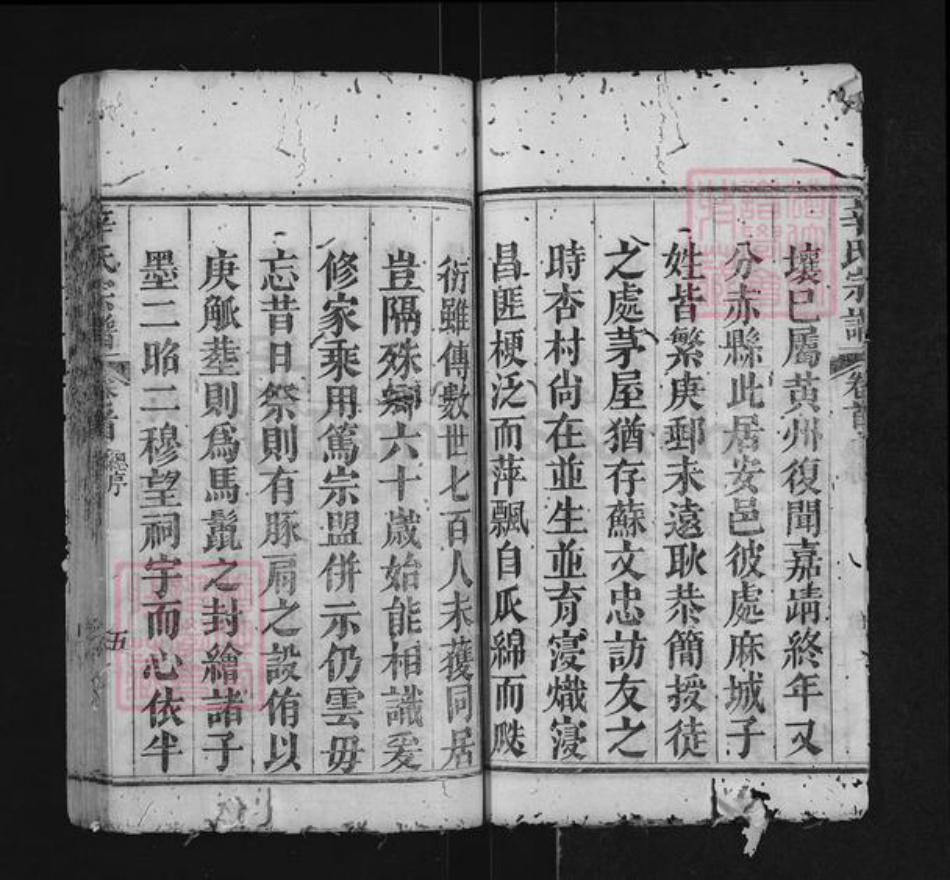 辛氏宗譜 卷首
壤已屬黃州復聞嘉靖終年又
分赤縣此居安邑彼處麻城子
姓皆繁庚郵未遠耿恭簡授徒
之處茅屋猶存蘇文忠訪友之
時杏村尙在並生並育寖熾寖
昌匪梗泛而萍飄自瓜綿而瓞
衍雖傳數世七百人未獲同居
豈隔殊鄉六十歲始能相識爰
修家乘用篤宗盟併示仍雲毋
忘昔日祭則有豚肩之設侑以
庚觚塟則爲馬鬛之封繪諸子
墨二昭二穆望祠宇而心依半
總序
五